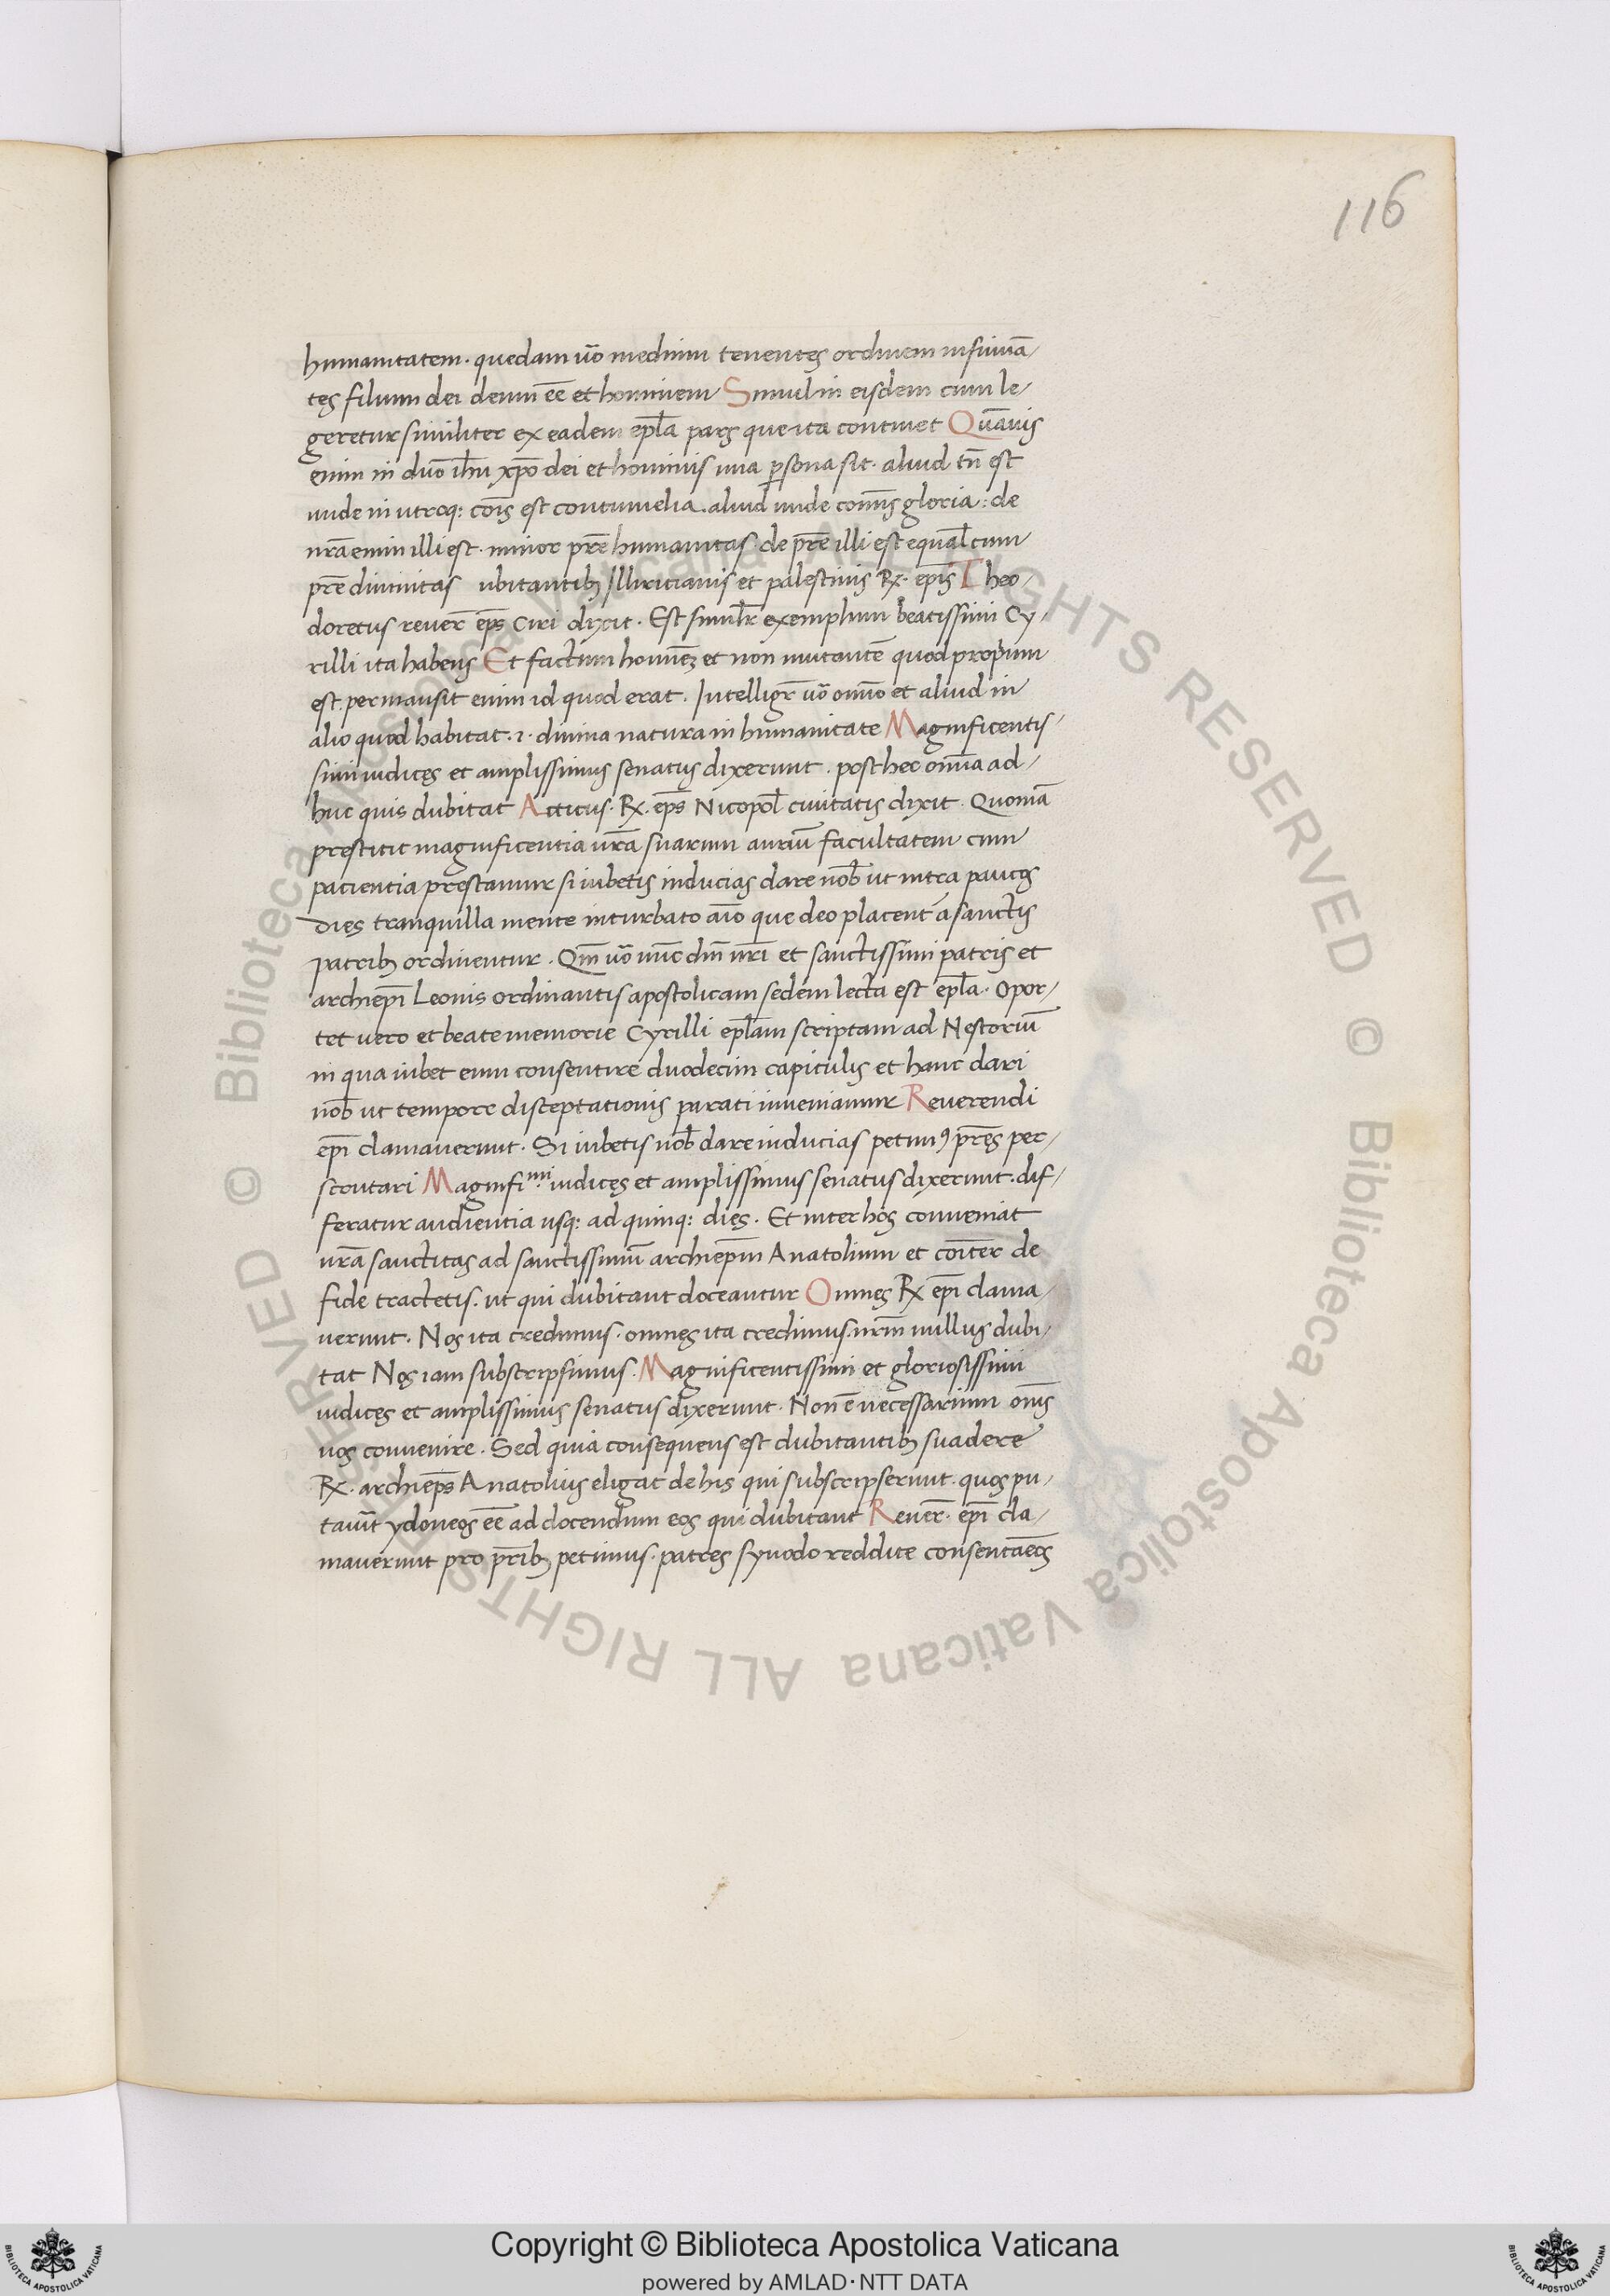 116
humanitatem. quedam ūo medium tenentes ordinem insinuā/
tes filium dei deum ēē et hominem Simul in eisdem cum le/
geretur similiter ex eadem epl̄a pars que ita continet Quāuis
enim in duō ih̄u xp̄o dei et hominis una ꝑsona sit. aliud tn̄ est
unde in utroq: cōis est contumelia. aliud unde com̄is gloria: de
nr̄a enim illi est. minor pr̄e humanitas de pr̄e illi est equal̄ cum
pr̄e diuinitas ubitantibꝫ Illiricianis et palestinis Rx. ep̄is Theo/
doretus reuer̄ ep̄s Ciri dixit. Est simil̄r exemplum beatissimi Cy/
rilli ita habens Et factum homīeꝫ et non mutantē quod proprium
est. permansit enim id quod erat. Intelligr̄ ūo om̄o et aliud in
alio quod habitat. i. diuina natura in humanitate Magnificentis/
simi iudices et amplissimus senatus dixerunt. post hec om̄ia ad/
huc quis dubitat Atticus. Rx. ep̄s Nicopol̄ ciuitatis dixit. Quoniā
prestitit magnificentia ur̄a suarum auriū facultatem cum
pacientia prestamur si iubetis inducias dare nob̄ ut intra paucos
dies tranquilla mente inturbato aīo que deo placent a sanctis
patribꝫ ordinentur. Qm̄ ūo nūc dn̄i nr̄i et sanctissimi patris et
archiep̄i Leonis ordinantis apostolicam sedem lecta est epl̄a. Opor/
tet uero et beate memorie Cyrilli epl̄am scriptam ad Nestoriū
in qua iubet eum consentire duodecim capitulis et hanc dari
nob̄ ut tempore disceptationis parati inueniamur Reuerendi
ep̄i clamauerunt. Si iubetis nob̄ dare inducias petimꝰ pr̄es per/
scrutari Magnifi.mi iudices et amplissimus senatus dixerunt. dif/
feratur audientia usq: ad quinq: dies. Et inter hos conueniat
ur̄a sanctitas ad sanctissimū archiep̄m Anatolium et cōiter de
fide tractetis. ut qui dubitant doceantur Omnes Rx ep̄i clama/
uerunt. Nos ita credimus. omnes ita credimus. nr̄m nullus dubi/
tat Nos iam subscripsimus. Magnificentissimi et gloriosissimi
iudices et amplissimus senatus dixerunt. Non ē necessarium om̄s
uos conuenire. Sed quia consequens est dubitantibꝫ suadere
Rx. archiep̄s Anatolius eligat de his qui subscripserunt. quos pu/
tauīt ydoneos ēē ad docendum eos qui dubitant Reuer̄. ep̄i cla/
mauerunt pro pr̄ibꝫ petimus. patres synodo reddite consentāeos
© Biblioteca Apostolica Vaticana ALL RIGHTS RESERVED © Biblioteca Apostolica Vaticana ALL RIGHTS RESERVED
Copyright © Biblioteca Apostolica Vaticana
powered by AMLAD·NTT DATA
BIBLIOTECA APOSTOLICA VATICANA
BIBLIOTECA APOSTOLICA VATICANA